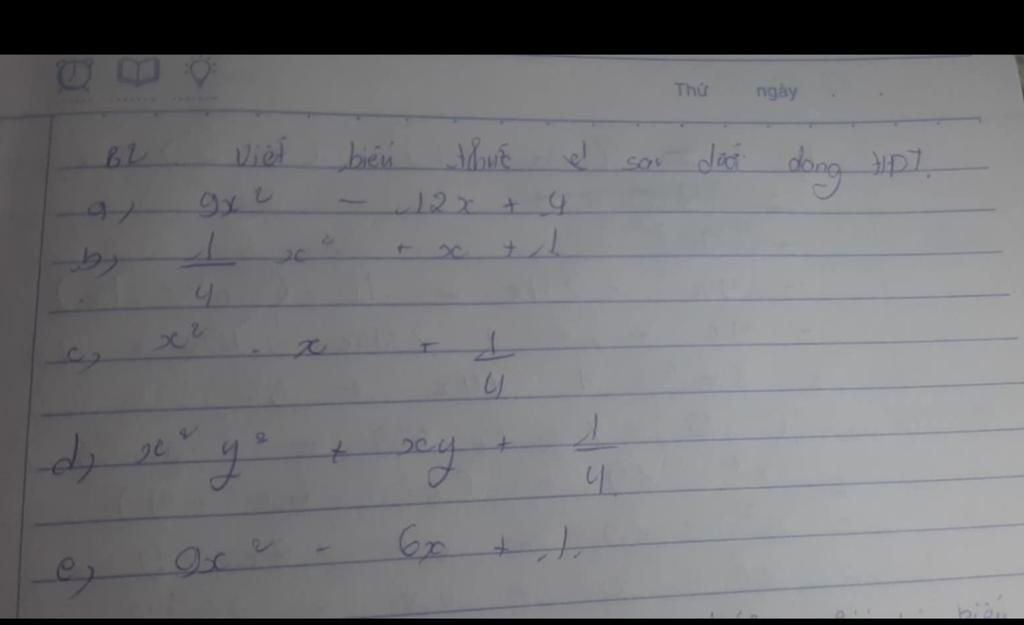 Thứ ngày
B2 Viết biểu thức sau dưới dạng HĐT.
a, 9x² - 12x + 4
b, 1/4 x² + x + 1
c, x² - x + 1/4
d, x² y² + xy + 1/4
e, 9x² - 6x + 1